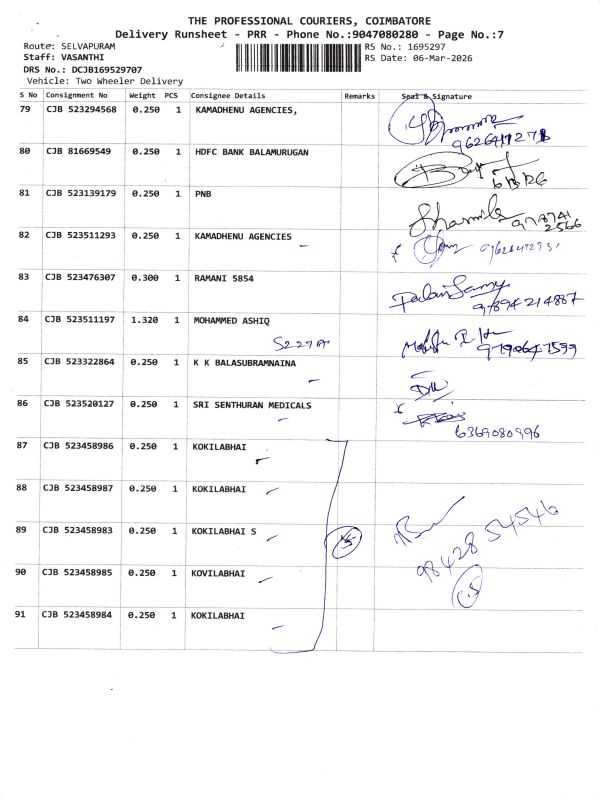 THE PROFESSIONAL COURIERS, COIMBATORE
Delivery Runsheet - PRR - Phone No.:9047080280 - Page No.:7
Route: SELVAPURAM RS No.: 1695297
Staff: VASANTHI RS Date: 06-Mar-2026
DRS No.: DCJB169529707
Vehicle: Two Wheeler Delivery
S No Consignment No Weight PCS Consignee Details Remarks Seal & Signature
79 CJB 523294568 0.250 1 KAMADHENU AGENCIES,
80 CJB 81669549 0.250 1 HDFC BANK BALAMURUGAN
81 CJB 523139179 0.250 1 PNB
82 CJB 523511293 0.250 1 KAMADHENU AGENCIES
83 CJB 523476307 0.300 1 RAMANI 5854
97894214887
84 CJB 523511197 1.320 1 MOHAMMED ASHIQ
85 CJB 523322864 0.250 1 K K BALASUBRAMNAINA
86 CJB 523520127 0.250 1 SRI SENTHURAN MEDICALS
6369080996
87 CJB 523458986 0.250 1 KOKILABHAI
88 CJB 523458987 0.250 1 KOKILABHAI
89 CJB 523458983 0.250 1 KOKILABHAI S
98428 54546
90 CJB 523458985 0.250 1 KOVILABHAI
91 CJB 523458984 0.250 1 KOKILABHAI